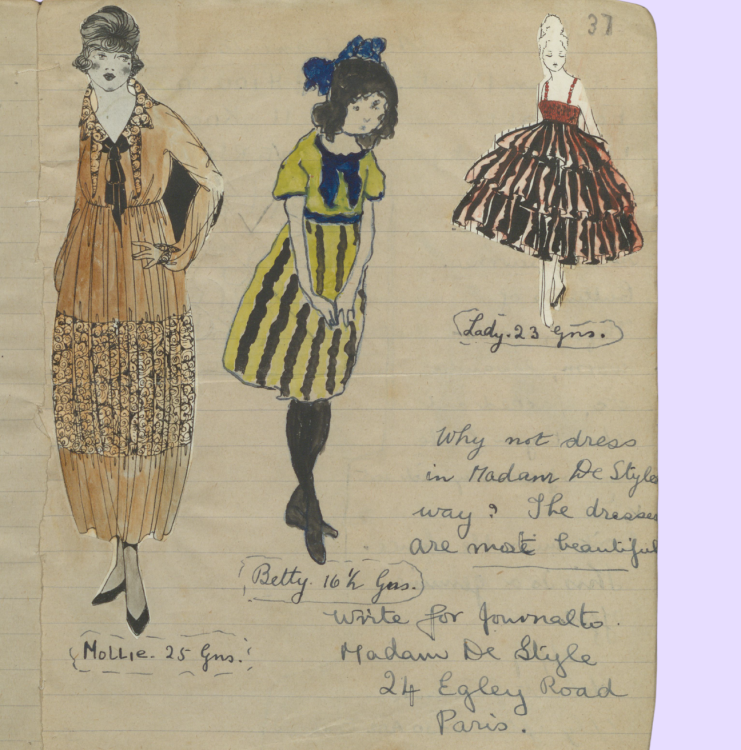 37
Lady. 23 Gns.
Why not dress
in Madam De Style
way? The dresses
are most beautiful
Betty. 16½ Gns.
Write for Journal to.
Madam De Style
24 Egley Road
Paris.
Mollie. 25 Gns.